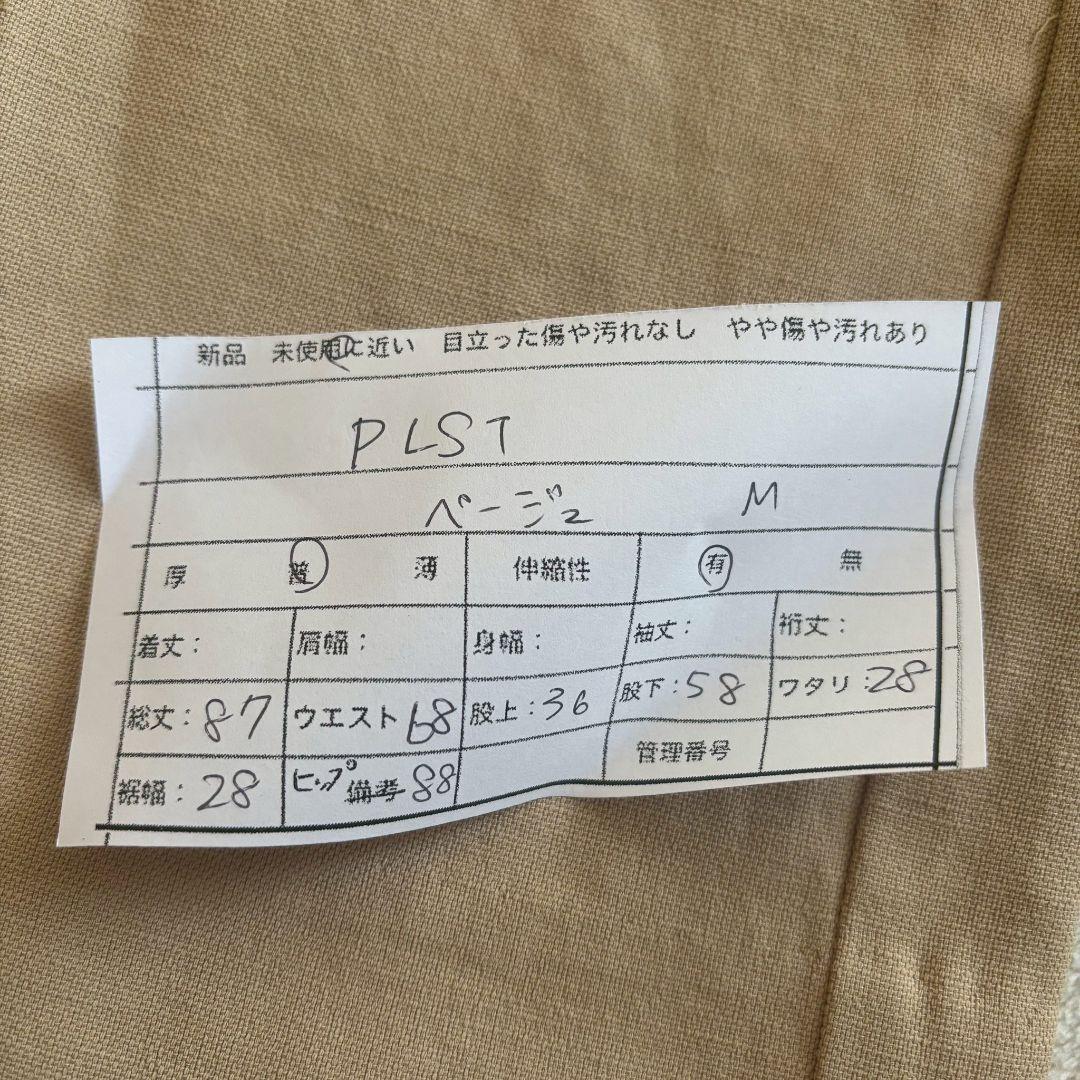 新品 未使用に近い 目立った傷や汚れなし やや傷や汚れあり
PLST
ベージュ M
厚 普 薄 伸縮性 有 無
着丈： 肩幅： 身幅： 袖丈： 裄丈：
総丈：87 ウエスト 68 股上：36 股下：58 ワタリ：28
裾幅：28 ヒップ 備考 88 管理番号